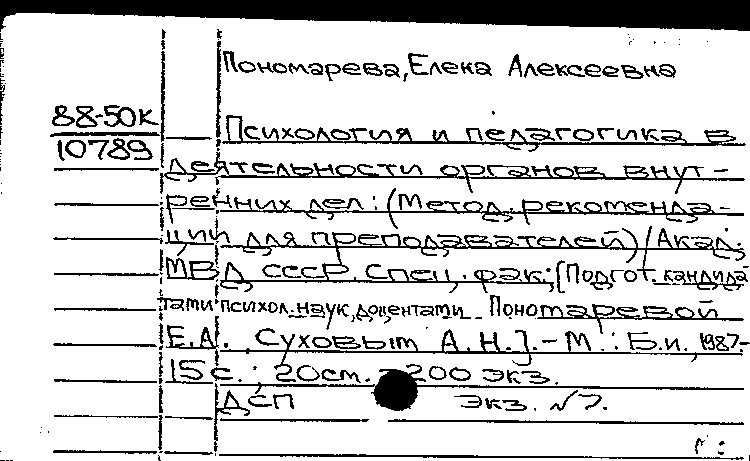 Пономарева, Елена Алексеевна
88-50К
10789
Психология и педагогика в
деятельности органов внут-
ренних дел: (Метод. рекоменда-
ции для преподавателей) / Акад.
МВД СССР. Спец. фак.; [Подгот. кандида
тами психол. наук, доцентами Пономаревой
Е.А., Суховым А.Н.]. - М.: Б.и., 1987.-
15 с.; 20 см. - 200 экз.
ДСП экз. №7.